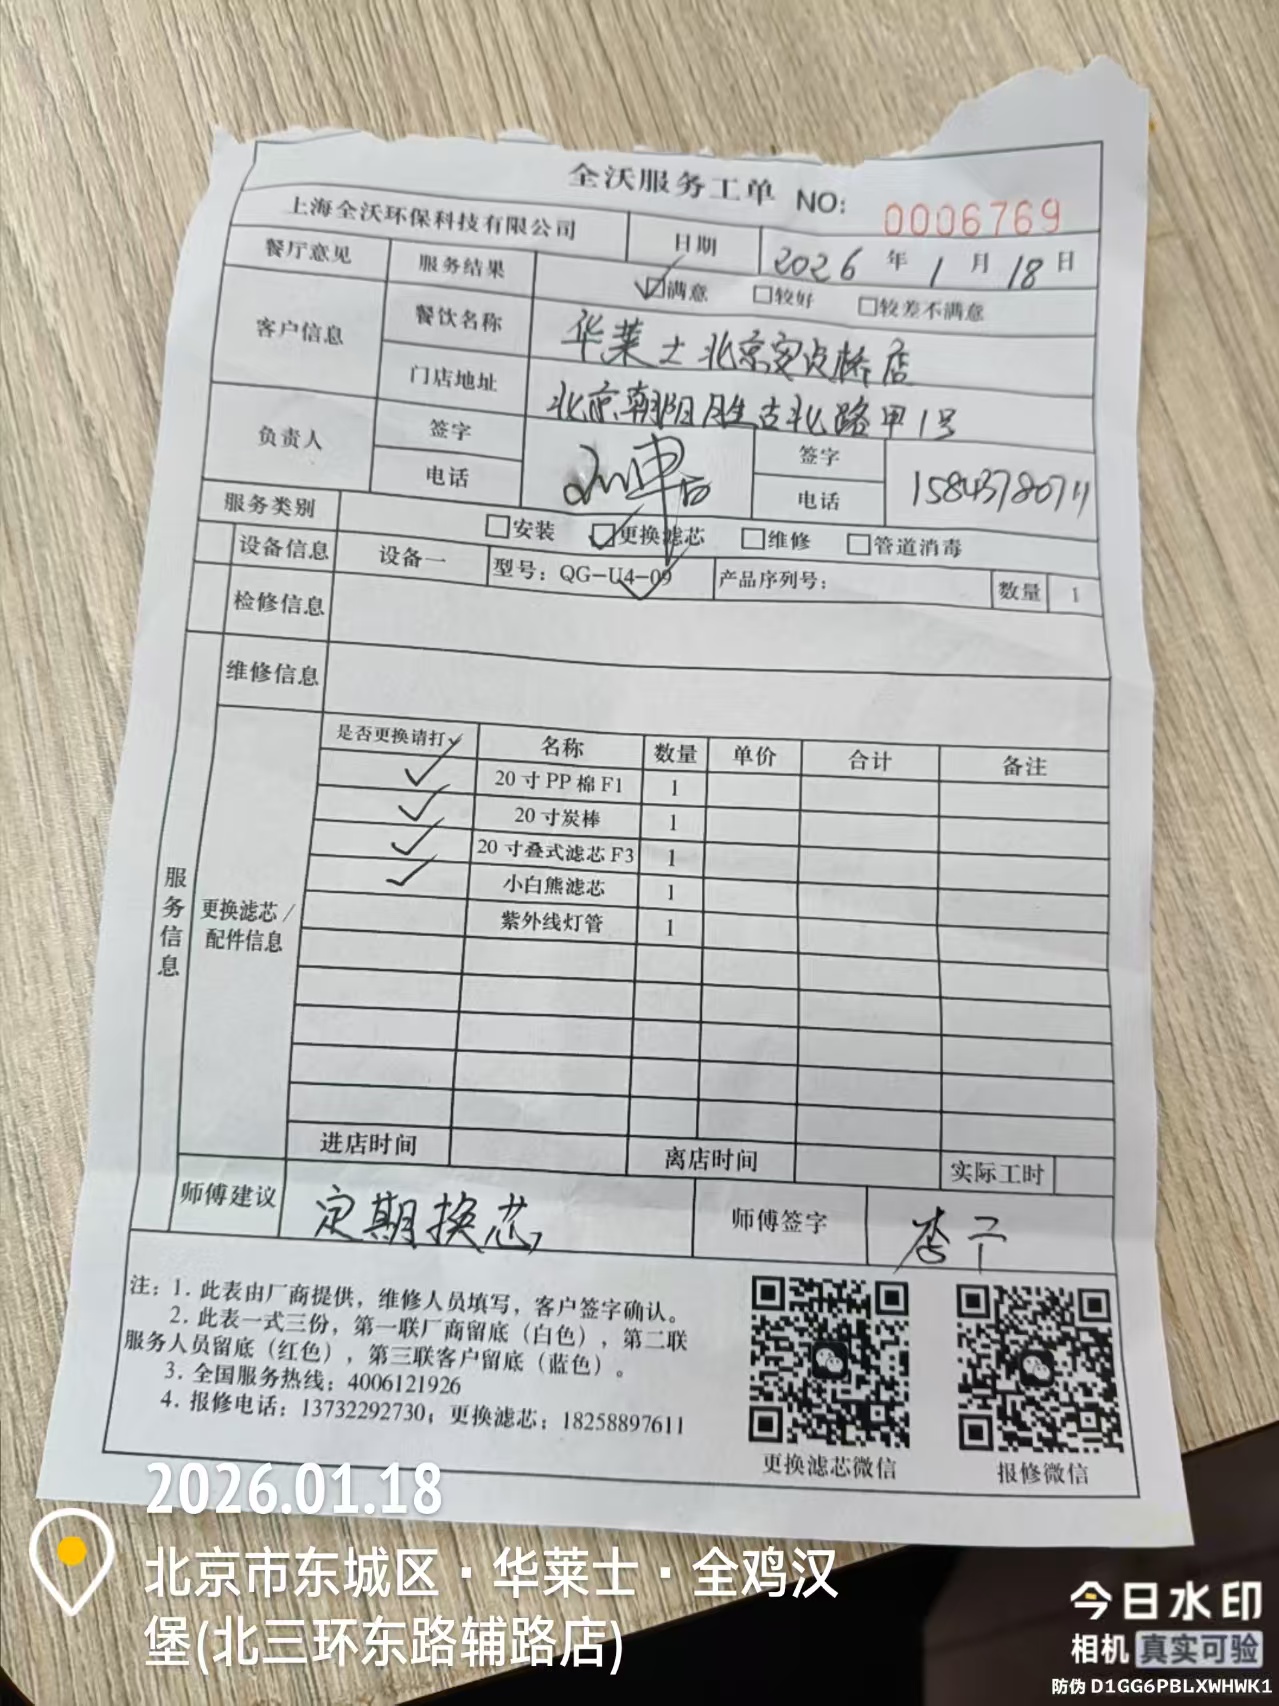 全沃服务工单 NO: 0006769
上海全沃环保科技有限公司 日期 2026 年 1 月 18 日
餐厅意见 服务结果 ☑满意 □较好 □较差不满意
客户信息 餐饮名称 华莱士北京安贞桥店
门店地址 北京朝阳胜古北路甲1号
负责人 签字 签字
电话 电话 15843780711
服务类别 □安装 ☑更换滤芯 □维修 □管道消毒
设备信息 设备一 型号：QG-U4-09 产品序列号： 数量 1
检修信息
维修信息
服务信息
更换滤芯/
配件信息
是否更换请打✓ 名称 数量 单价 合计 备注
✓ 20寸PP棉F1 1
✓ 20寸炭棒 1
✓ 20寸叠式滤芯F3 1
✓ 小白熊滤芯 1
紫外线灯管 1
进店时间 离店时间 实际工时
师傅建议 定期换芯 师傅签字 李
注：1. 此表由厂商提供，维修人员填写，客户签字确认。
2. 此表一式三份，第一联厂商留底（白色），第二联
服务人员留底（红色），第三联客户留底（蓝色）。
3. 全国服务热线：4006121926
4. 报修电话：13732292730；更换滤芯：18258897611
更换滤芯微信 报修微信
2026.01.18
北京市东城区·华莱士·全鸡汉
堡(北三环东路辅路店)
今日水印
相机 真实可验
防伪 D1GG6PBLXWHWK1